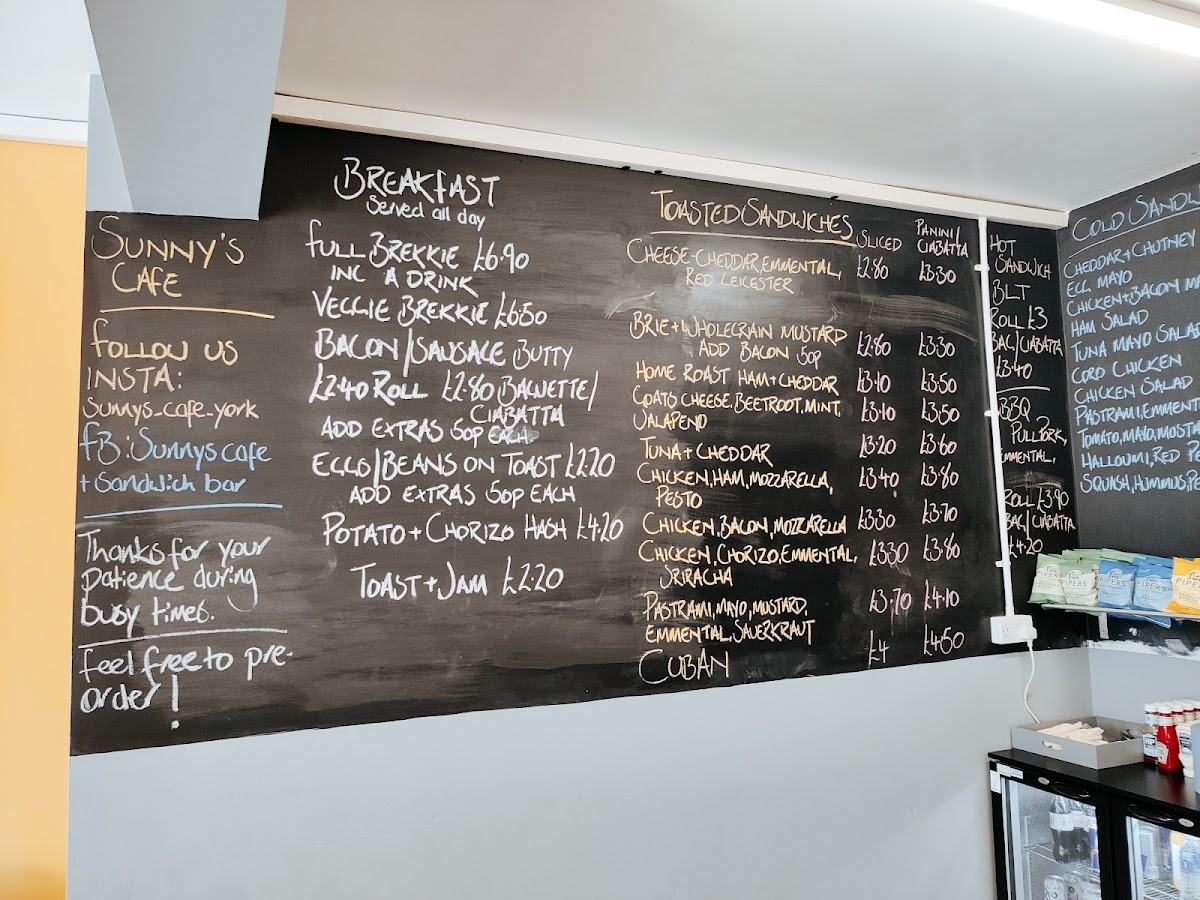 SUNNY'S
CAFE
FOLLOW US
INSTA:
Sunnys_cafe_york
FB: Sunnys cafe
+ Sandwich bar
Thanks for your
patience during
busy times.
Feel free to pre-
order!
BREAKFAST
Served all day
FULL BREKKIE £6.90
INC A DRINK
VEGGIE BREKKIE £6.50
BACON/SAUSAGE BUTTY
£2.40 ROLL £2.80 BAGUETTE/
CIABATTA
ADD EXTRAS 50P EACH
EGGS/BEANS ON TOAST £2.20
ADD EXTRAS 50P EACH
POTATO + CHORIZO HASH £4.20
TOAST + JAM £2.20
TOASTED SANDWICHES SLICED PANINI/
CIABATTA
CHEESE - CHEDDAR, EMMENTAL, £2.80 £3.30
RED LEICESTER
BRIE + WHOLEGRAIN MUSTARD £2.80 £3.30
ADD BACON 50P
HOME ROAST HAM + CHEDDAR £3.10 £3.50
GOATS CHEESE, BEETROOT, MINT, £3.10 £3.50
JALAPENO
TUNA + CHEDDAR £3.20 £3.60
CHICKEN, HAM, MOZZARELLA, £3.40 £3.80
PESTO
CHICKEN, BACON, MOZZARELLA £3.30 £3.70
CHICKEN, CHORIZO, EMMENTAL, £3.30 £3.80
SRIRACHA
PASTRAMI, MAYO, MUSTARD, £3.70 £4.10
EMMENTAL, SAUERKRAUT
CUBAN £4 £4.50
HOT
SANDWICH
BLT
ROLL £3
BAG/CIABATTA
£3.40
BBQ
PULLPORK,
EMMENTAL,
ROLL £3.90
BAG/CIABATTA
£4.20
COLD
CHEDDAR + CHUTNEY
EGG MAYO
CHICKEN + BACON
HAM SALAD
TUNA MAYO
CORO CHICKEN
CHICKEN SALAD
PASTRAMI,
TOMATO, MAYO,
HALLOUMI, RED
SQUASH, HUMMUS,
PIPERS
PIPERS
PIPERS
PIPERS
PIPERS